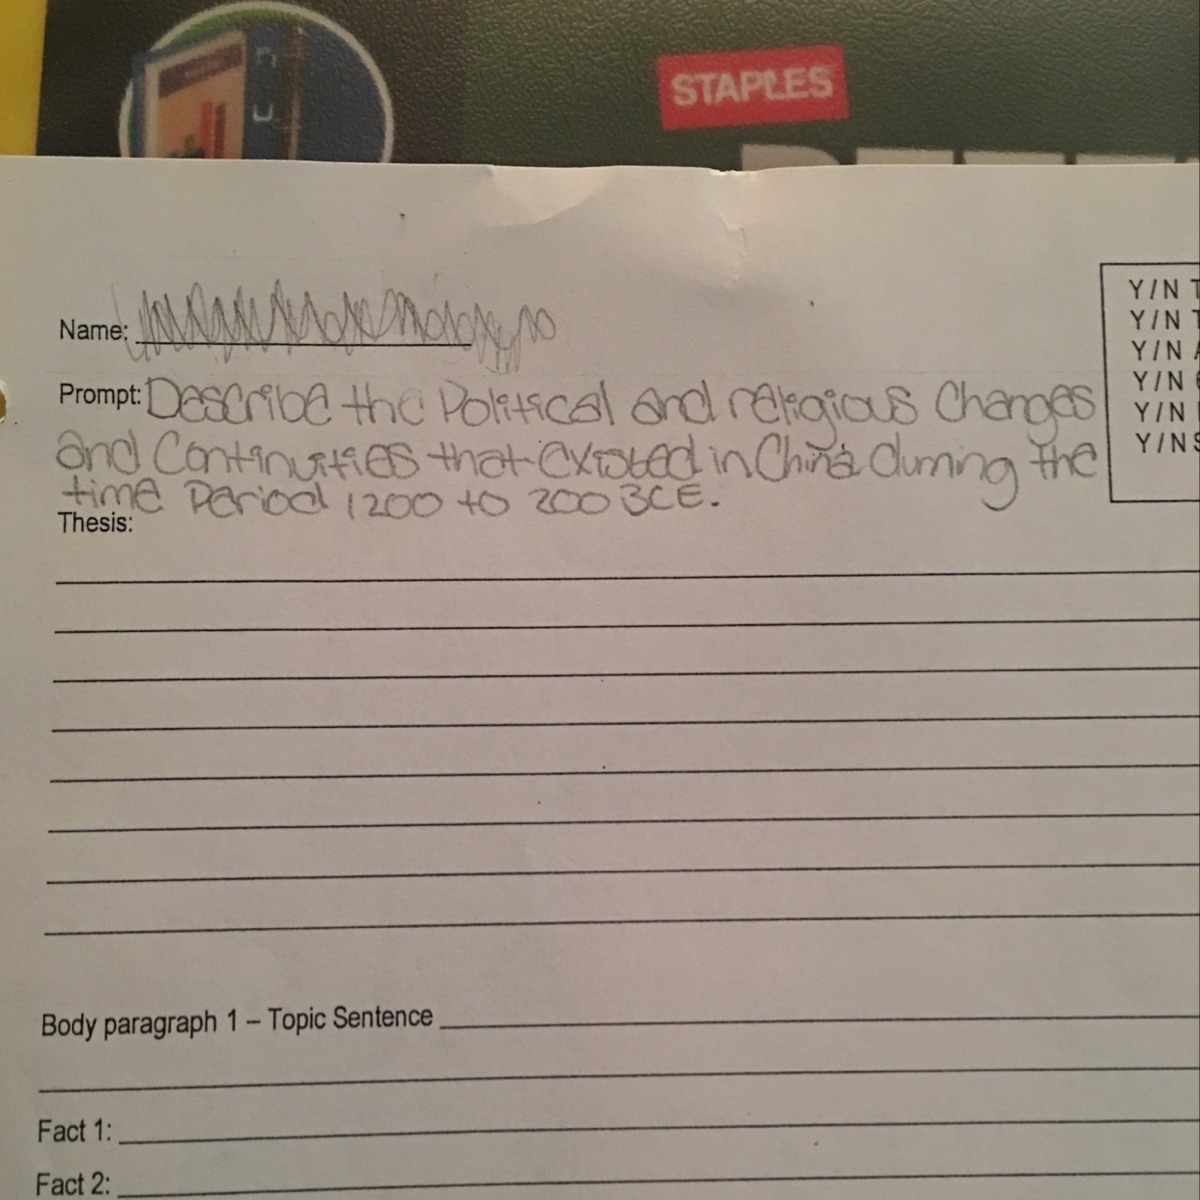 STAPLES
Name:
Y/N T
Y/N T
Y/N A
Y/N
Y/N
Y/N S
Prompt: Describe the Political and religious Changes
and Continuities that existed in China during the
time Period 1200 to 200 BCE.
Thesis:
Body paragraph 1 – Topic Sentence
Fact 1:
Fact 2: